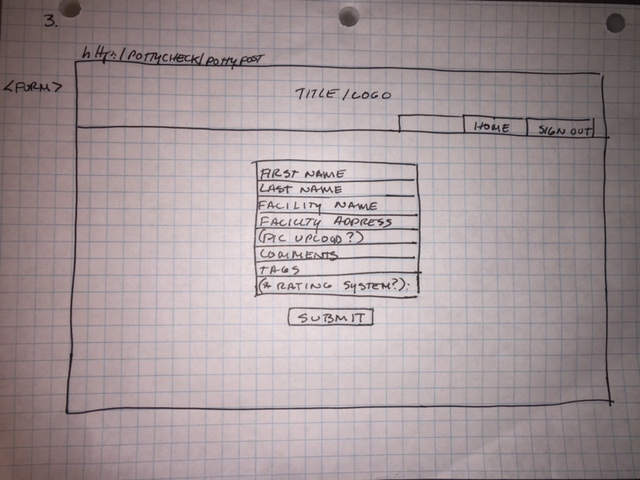 3.
http:/pottycheck/pottypost
<FORM>
TITLE/LOGO
HOME
SIGN OUT
FIRST NAME
LAST NAME
FACILITY NAME
FACILITY ADDRESS
(PIC UPLOAD?)
COMMENTS
TAGS
(* RATING SYSTEM?):
SUBMIT